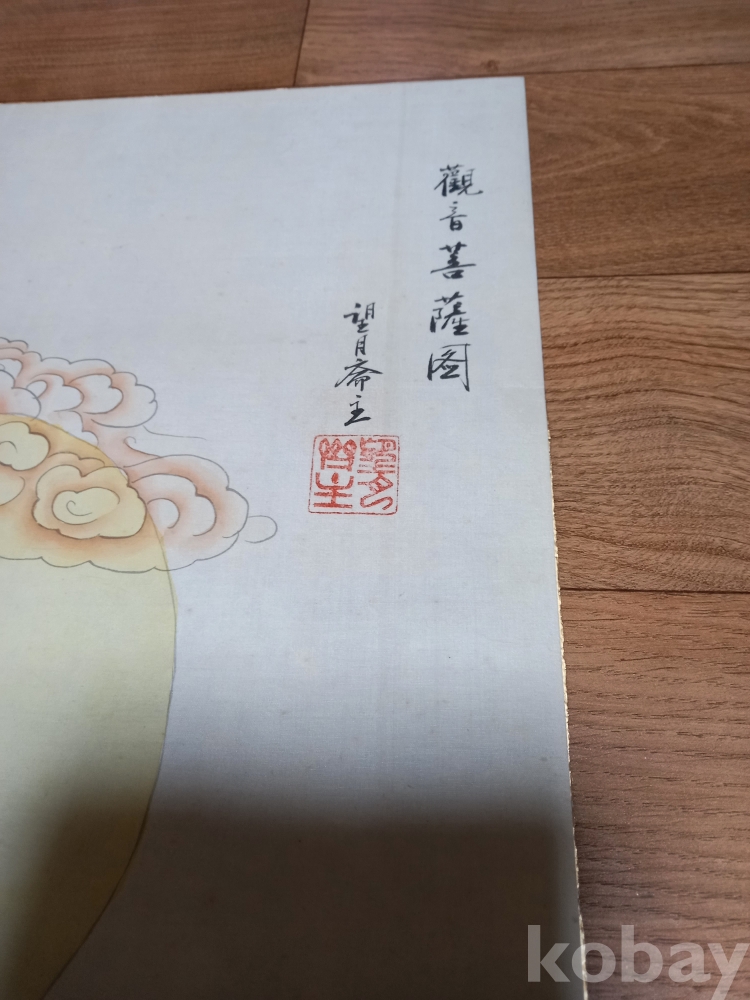 觀音菩薩图
望月斋主
kobay